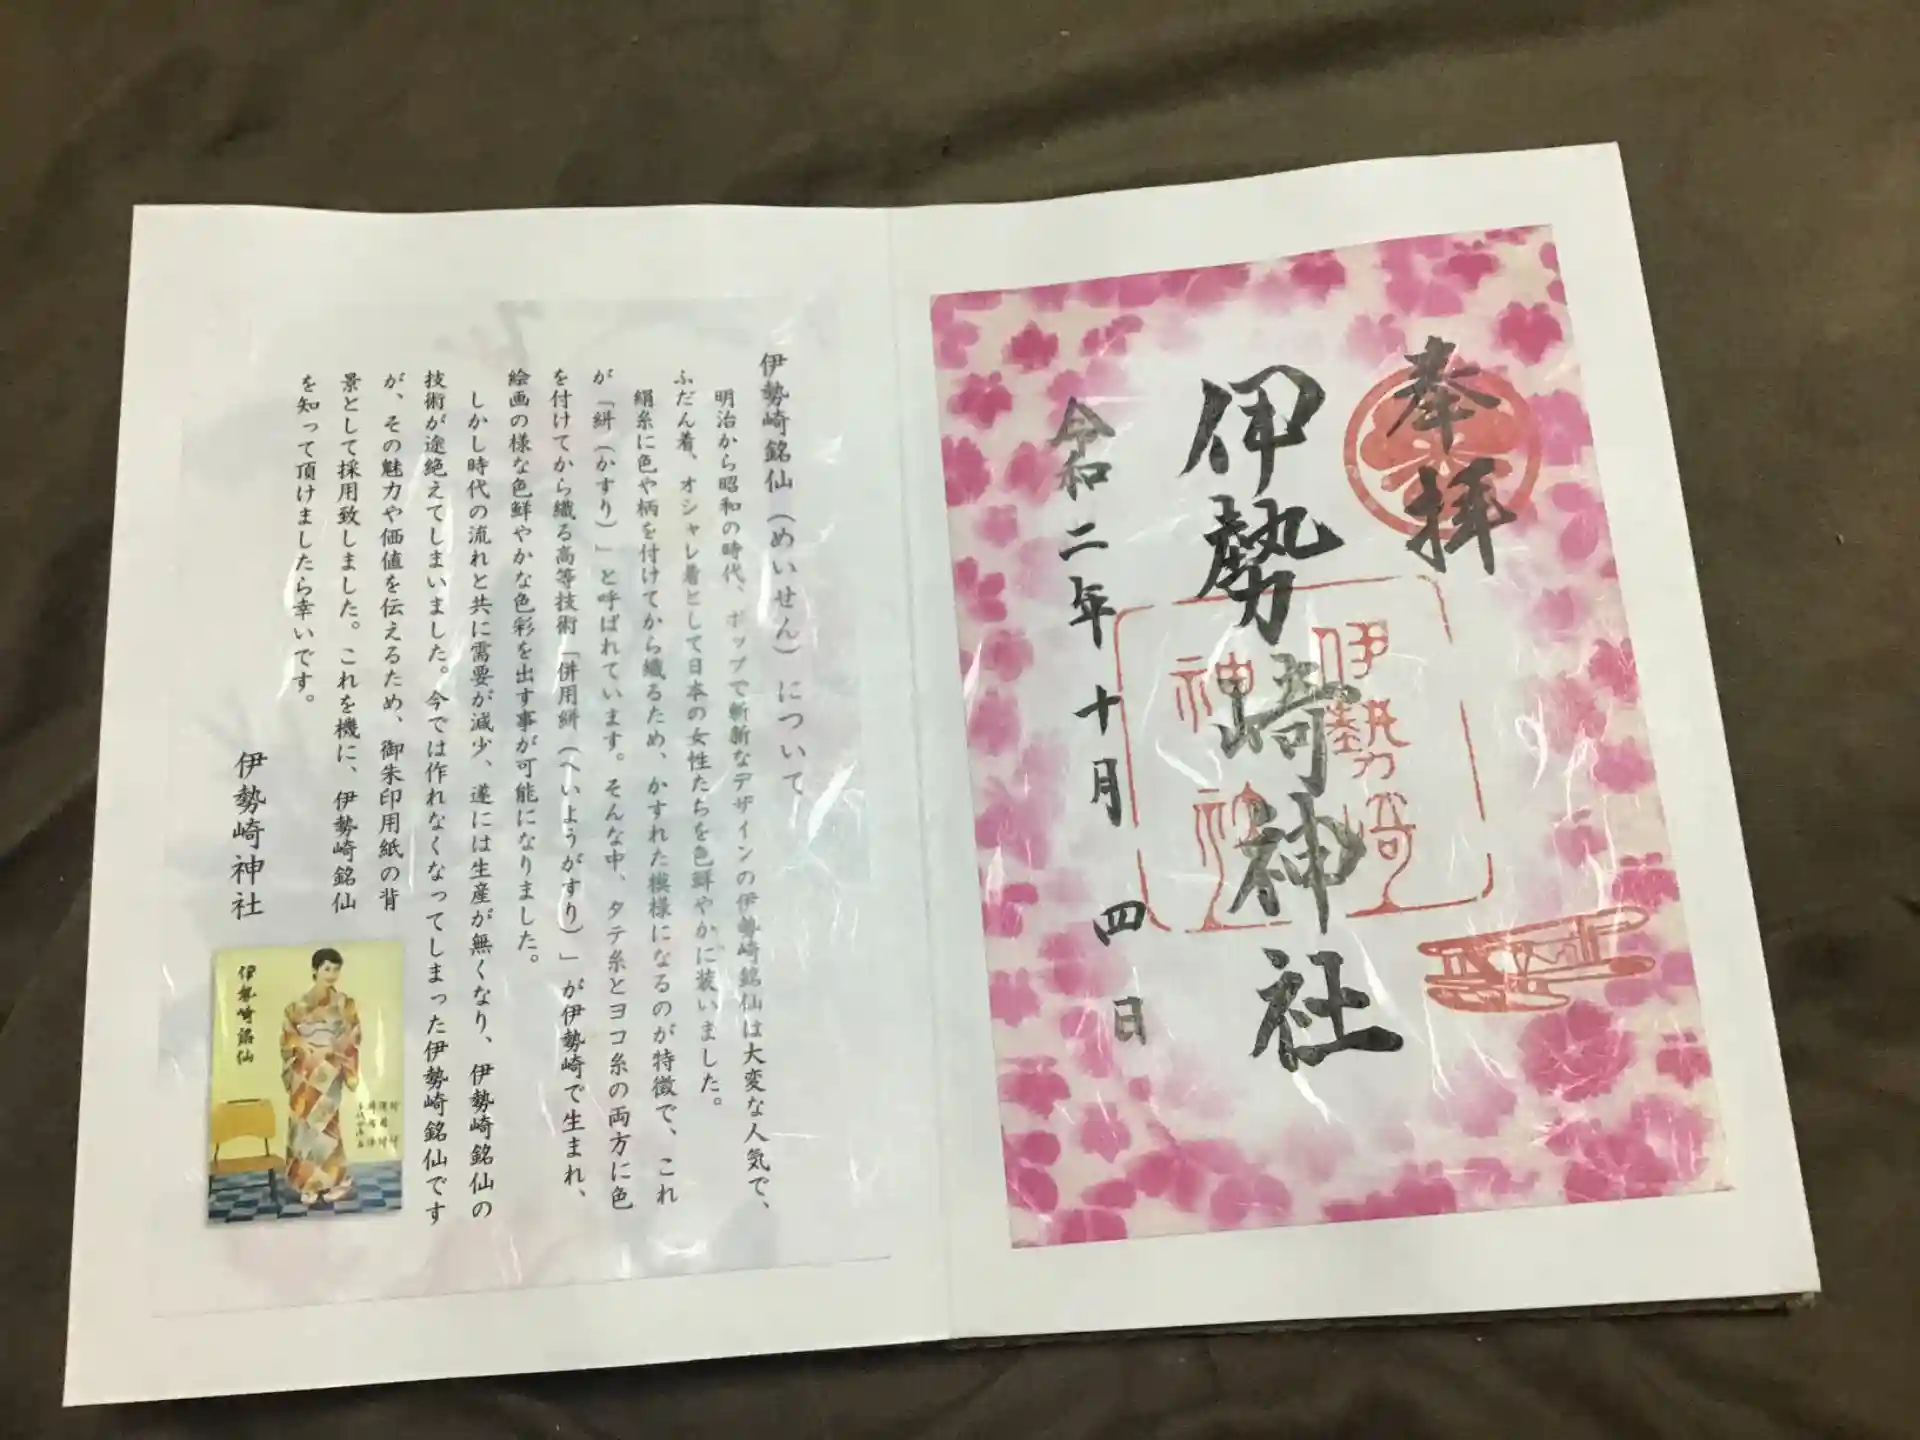 奉拝
伊勢崎神社
令和二年十月四日
伊勢崎
神社
伊勢崎銘仙（めいせん）について
明治から昭和の時代、ポップで斬新なデザインの伊勢崎銘仙は大変な人気で、
ふだん着、オシャレ着として日本の女性たちを色鮮やかに装いました。
絹糸に色や柄を付けてから織るため、かすれた模様になるのが特徴で、これ
が「絣（かすり）」と呼ばれています。そんな中、タテ糸とヨコ糸の両方に色
を付けてから織る高等技術「併用絣（へいようがすり）」が伊勢崎で生まれ、
絵画の様な色鮮やかな色彩を出す事が可能になりました。
しかし時代の流れと共に需要が減少、遂には生産が無くなり、伊勢崎銘仙の
技術が途絶えてしまいました。今では作れなくなってしまった伊勢崎銘仙です
が、その魅力や価値を伝えるため、御朱印用紙の背
景として採用致しました。これを機に、伊勢崎銘仙
を知って頂けましたら幸いです。
伊勢崎神社
伊勢崎銘仙